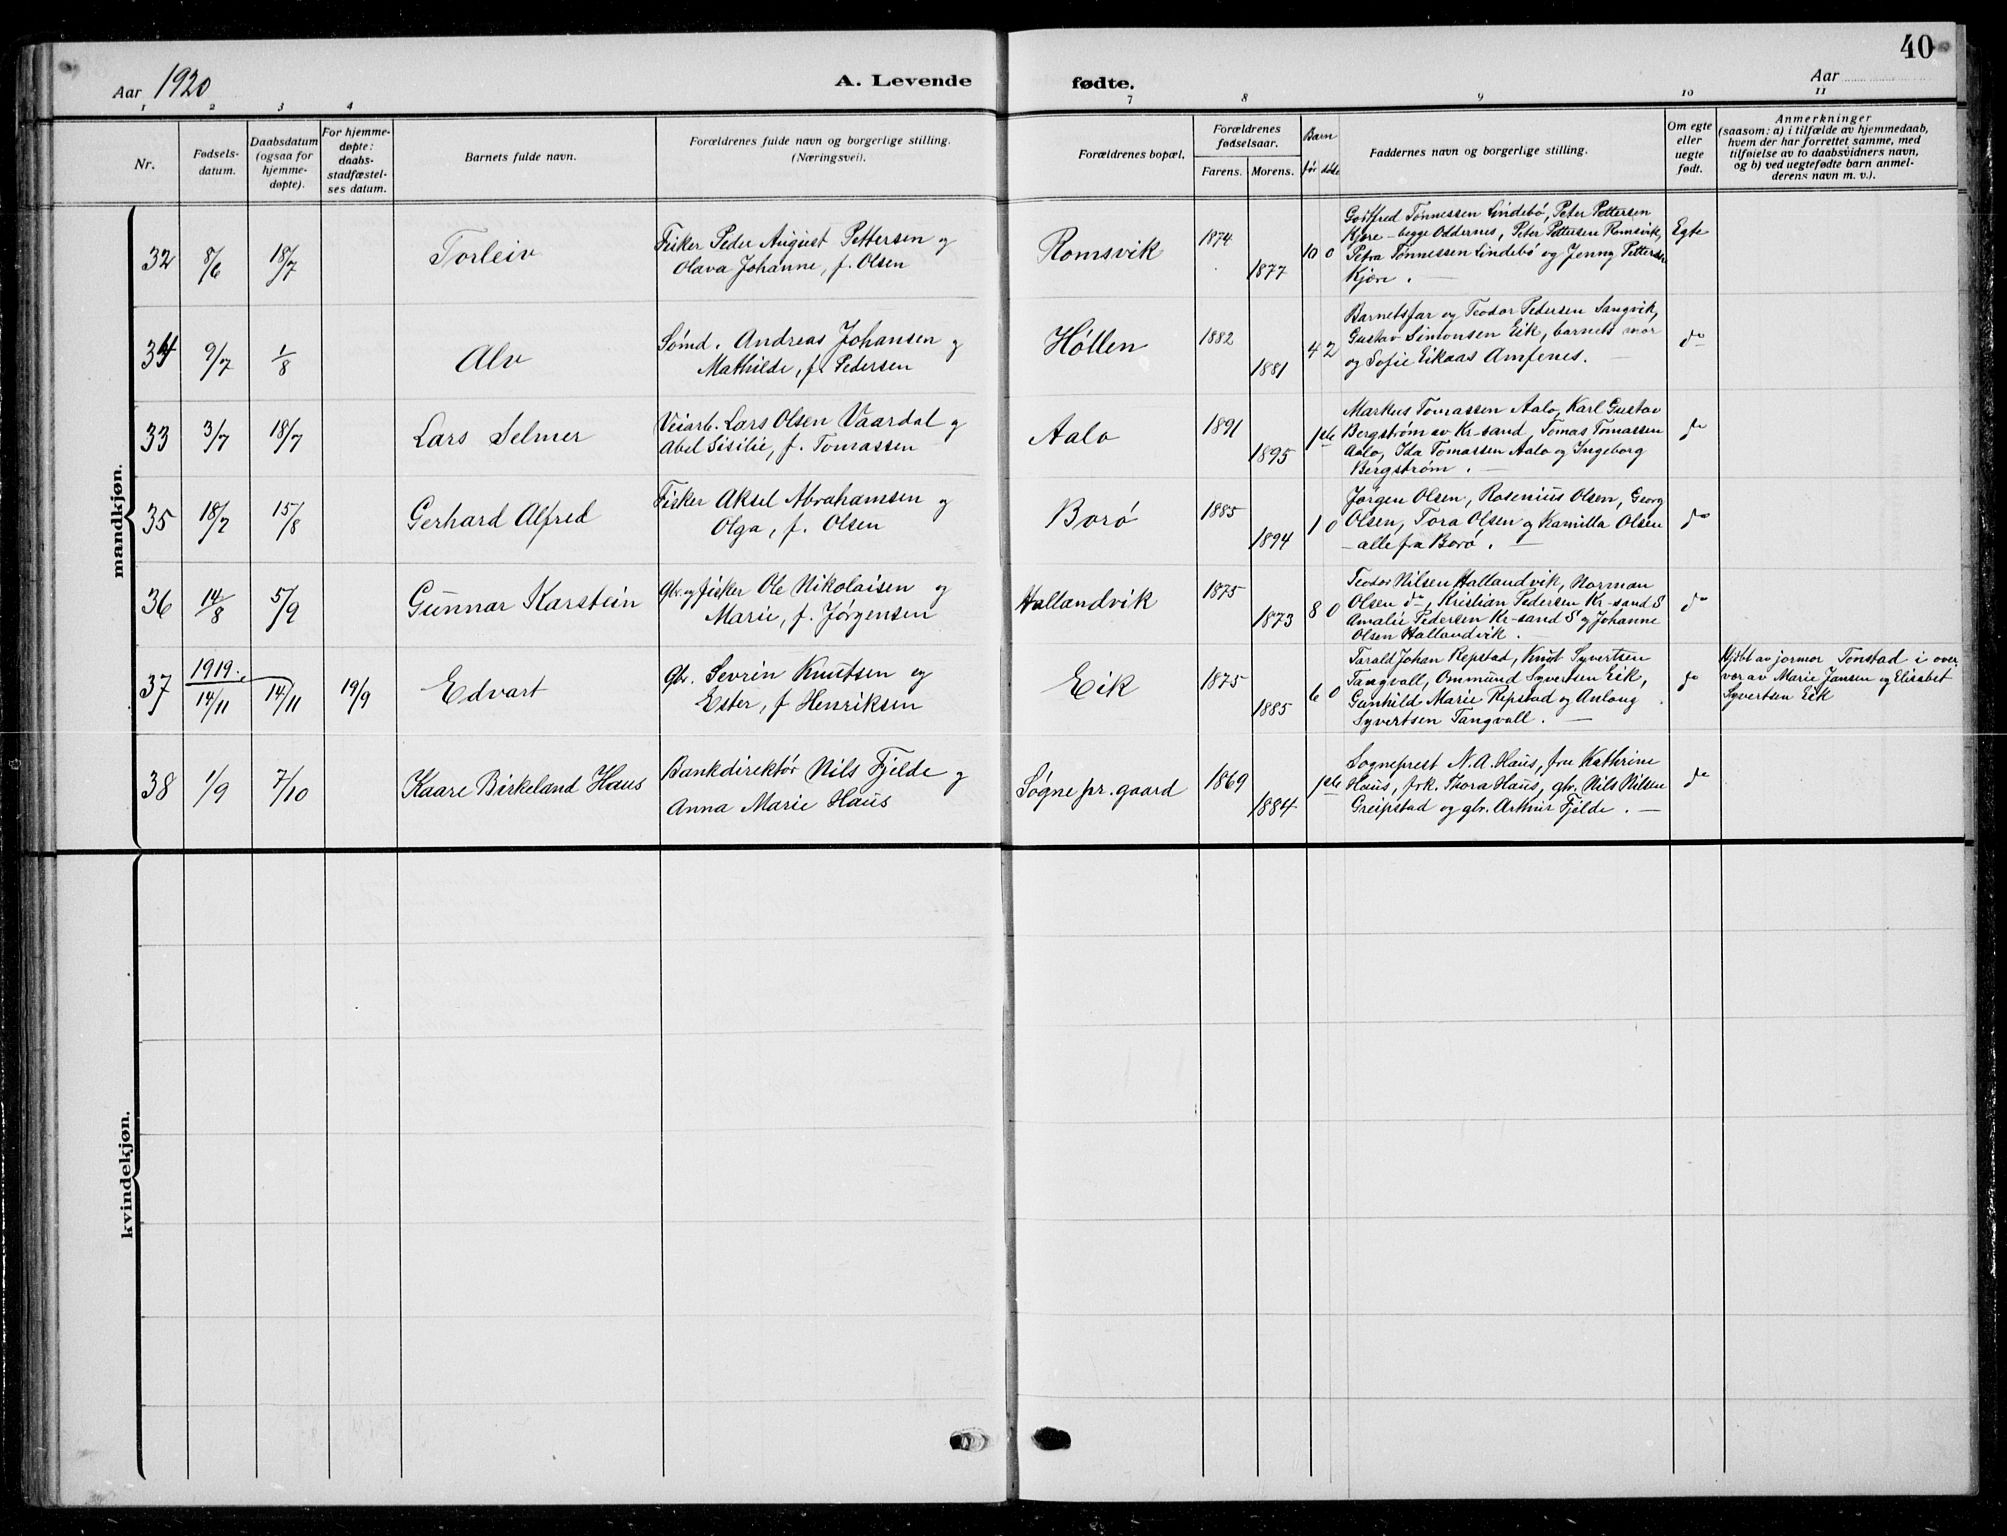 40
Aar 1920
A. Levende fødte.
Aar
1 2 3 4 7 8 9 10 11
Nr.
Fødsels-
datum.
Daabsdatum
(ogsaa for
hjemme-
døpte).
For hjemme-
døpte:
daabs-
stadfæstel-
ses datum.
Barnets fulde navn.
Forældrenes fulde navn og borgerlige stilling.
(Næringsvei).
Forældrenes bopæl.
Forældrenes
fødselsaar.
Farens. Morens.
Barn
før døde
Faddernes navn og borgerlige stilling.
Om egte
eller
uegte
født.
Anmerkninger
(saasom: a) i tilfælde av hjemmedaab,
hvem der har forrettet samme, med
tilføielse av to daabsvidners navn,
og b) ved uegtefødte barn anmel-
derens navn m. v.).
mandkjøn.
32 8/6 18/7 Torleiv
Fisker Peder August Pettersen og
Olava Johanne, f. Olsen
Romsvik 1874 1877 10 0
Godtfred Tønnessen Lindebø, Peter Pettersen
Kjære - begge Oddernes, Peter Pettersen Romsvik,
Petra Tønnessen Lindebø og Jenny Pettersen
Kjære. —
Egte
34 9/7 1/8 Alv
Sømd. Andreas Johansen og
Mathilde, f. Pedersen
Høllen 1882 1881 4 2
Barnetsfar og Teodor Pedersen Langvik,
Gustav Simonsen Eik, barnets mor
og Sofie Eikaas Amfenes. —
do
33 3/7 18/7 Lars Selmer
Veiarb. Lars Olsen Vaardal og
Abel Sisilie, f. Tomassen
Aalo 1891 1895 1ste
Markus Tomassen Aalo, Karl Gustav
Bergstrøm av Kr-sand, Tomas Tomassen
Aalo, Ida Tomassen Aalo og Ingeborg
Bergstrøm. —
do
35 18/7 15/8 Gerhard Alfred
Fisker Aksel Abrahamsen og
Olga, f. Olsen
Borø 1885 1894 1 0
Jørgen Olsen, Rosenius Olsen, Georg
Olsen, Tora Olsen og Kamilla Olsen
- alle fra Borø. —
do
36 14/8 5/9 Gunnar Karstein
Gbr. og fisker Ole Nikolaisen og
Marie, f. Jørgensen
Hallandvik 1875 1873 8 0
Teodor Nilsen Hallandvik, Norman
Olsen do, Kristian Pedersen Kr-sand S
Amalie Pedersen Kr-sand S og Johanne
Olsen Hallandvik. —
do
37 1919: 14/11 14/11 19/9 Edvart
Gbr. Sevrin Knutsen og
Ester, f. Henriksen
Eik 1875 1885 6 0
Tarald Johan Repstad, Knut Syvertsen
Tangvall, Ommund Syvertsen Eik,
Gunhild Marie Repstad og Anlaug
Syvertsen Tangvall. —
do
Hjdbt av jormor Tonstad i over-
vær av Marie Jansen og Elisabet
Syvertsen Eik
38 1/9 7/10 Kaare Birkeland Haus
Bankdirektør Nils Fjelde og
Anna Marie Haus
Søgne pr. gaard 1869 1884 1ste
Sogneprest N. A. Haus, fru Kathrine
Haus, frk. Thora Haus, gbr. Nils Nilsen
Greipstad og gbr. Arthur Fjelde. —
do
kvindekjøn.